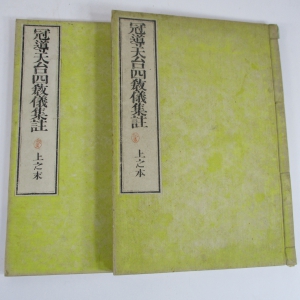 冠導天台四教儀集註
上之本
冠導天台四教儀集註
上之末